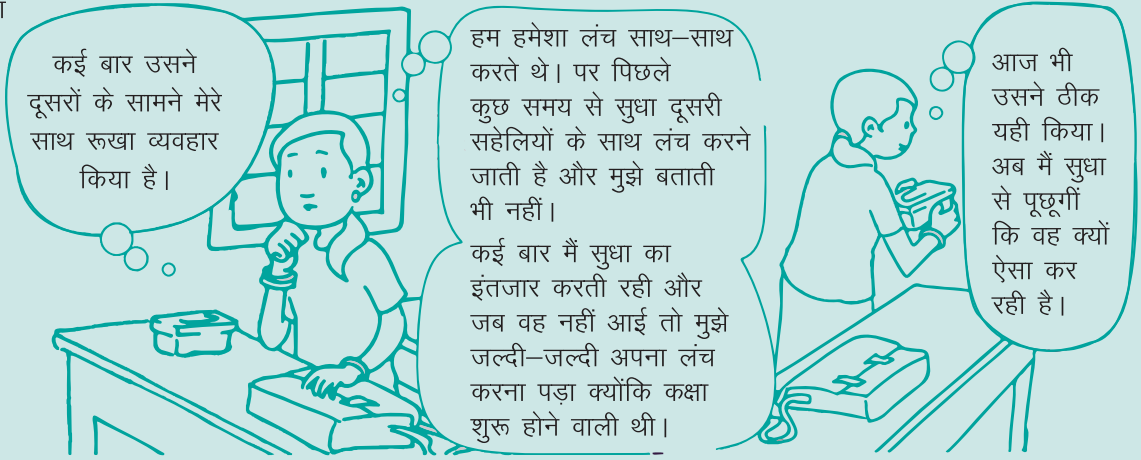 कई बार उसने
दूसरों के सामने मेरे
साथ रूखा व्यवहार
किया है।
हम हमेशा लंच साथ–साथ
करते थे। पर पिछले
कुछ समय से सुधा दूसरी
सहेलियों के साथ लंच करने
जाती है और मुझे बताती
भी नहीं।
कई बार मैं सुधा का
इंतजार करती रही और
जब वह नहीं आई तो मुझे
जल्दी–जल्दी अपना लंच
करना पड़ा क्योंकि कक्षा
शुरू होने वाली थी।
आज भी
उसने ठीक
यही किया।
अब मैं सुधा
से पूछूगीं
कि वह क्यों
ऐसा कर
रही है।